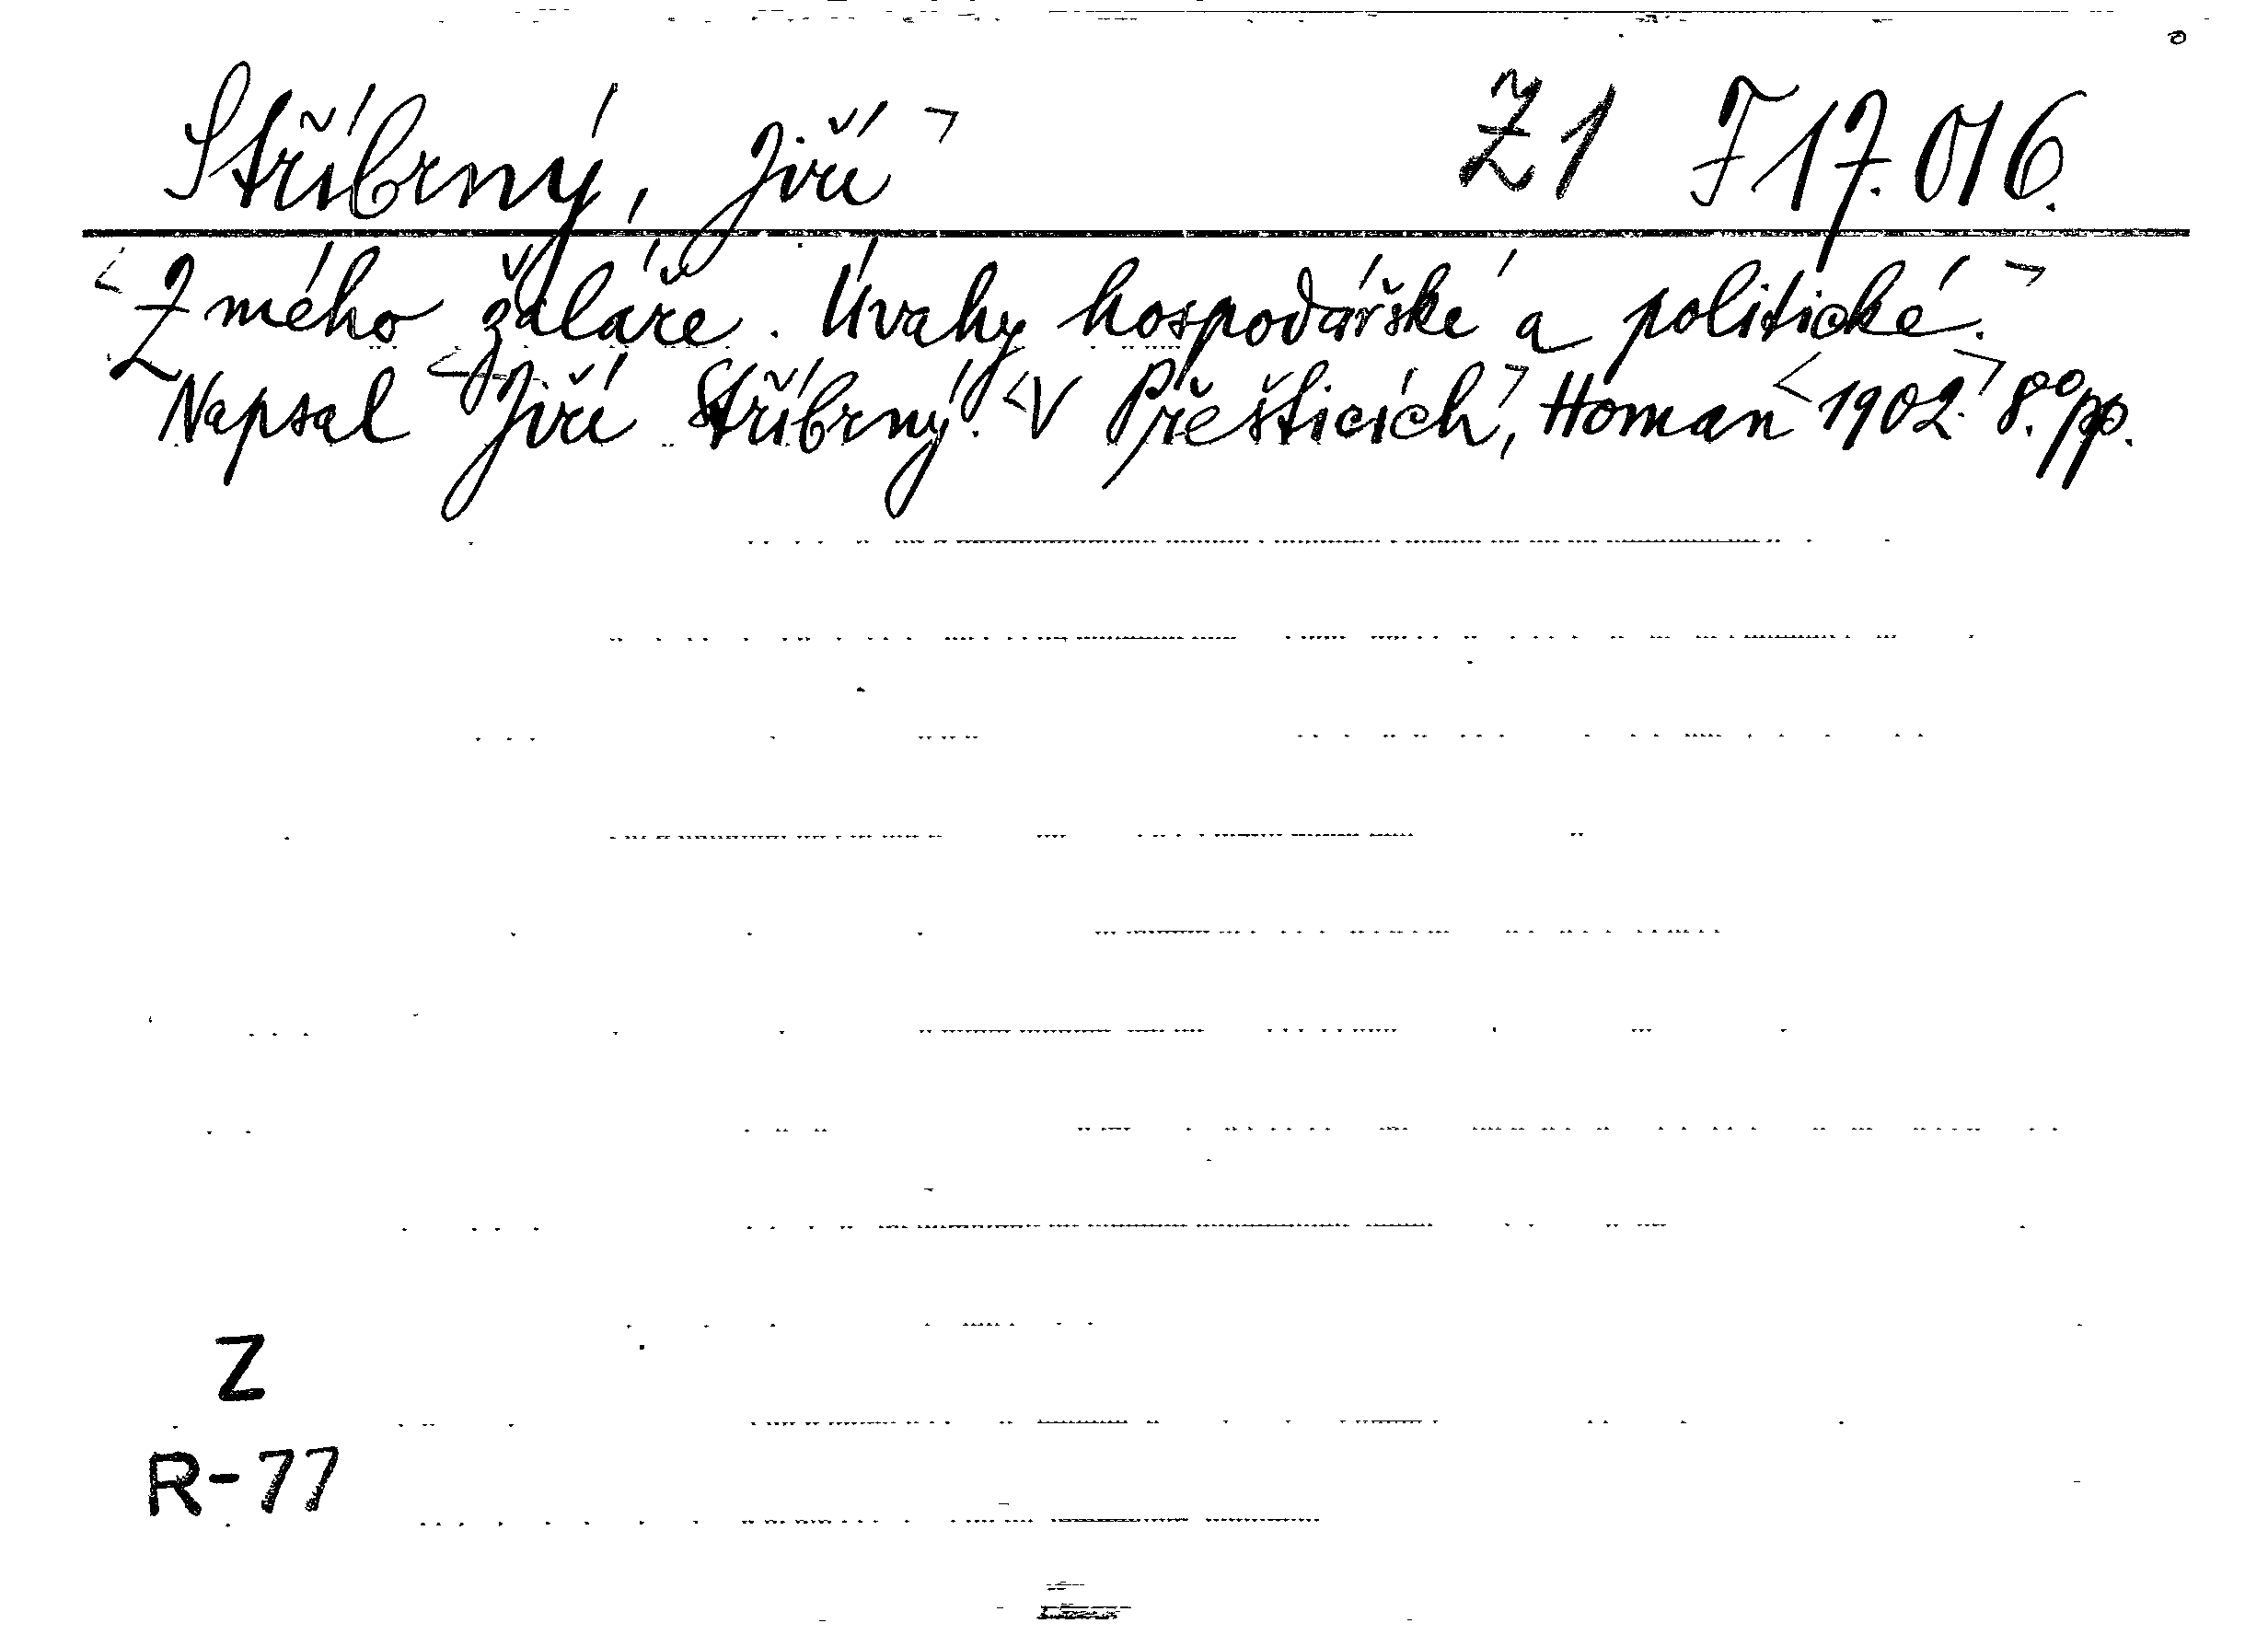 Stříbrný, Jiří ¬ Z1 J 17.016.
<Z mého žaláře. Úvahy hospodářské a politické.¬
Napsal <Jiří Stříbrný. <V Přešticích,¬ Homan <1902.¬ 8.° pp.
Z
R-77